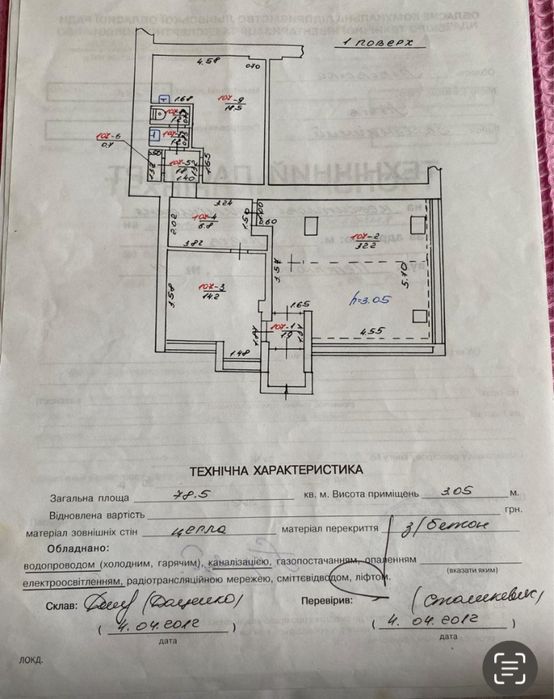 1 поверх
4.58
0.70
1.68
107-9
18.5
107-6
0.7
107-5
1.65
1.40
3.24
107-4
6.8
2.02
1.50
0.60
3.82
107-2
32.2
3.54
5.10
107-3
14.2
3.58
1.65
h=3.05
107-1
1.9
4.55
1.48
ТЕХНІЧНА ХАРАКТЕРИСТИКА
Загальна площа 78.5 кв. м. Висота приміщень 3.05 м.
Відновлена вартість грн.
матеріал зовнішніх стін цегла матеріал перекриття з/бетон
Обладнано:
водопроводом (холодним, гарячим), каналізацією, газопостачанням, опаленням
(вказати яким)
електроосвітленням, радіотрансляційною мережею, сміттєвідводом, ліфтом.
Склав: Перевірив:
( 4.04.2012 ) ( 4.04.2012 )
дата дата
ЛОКД.